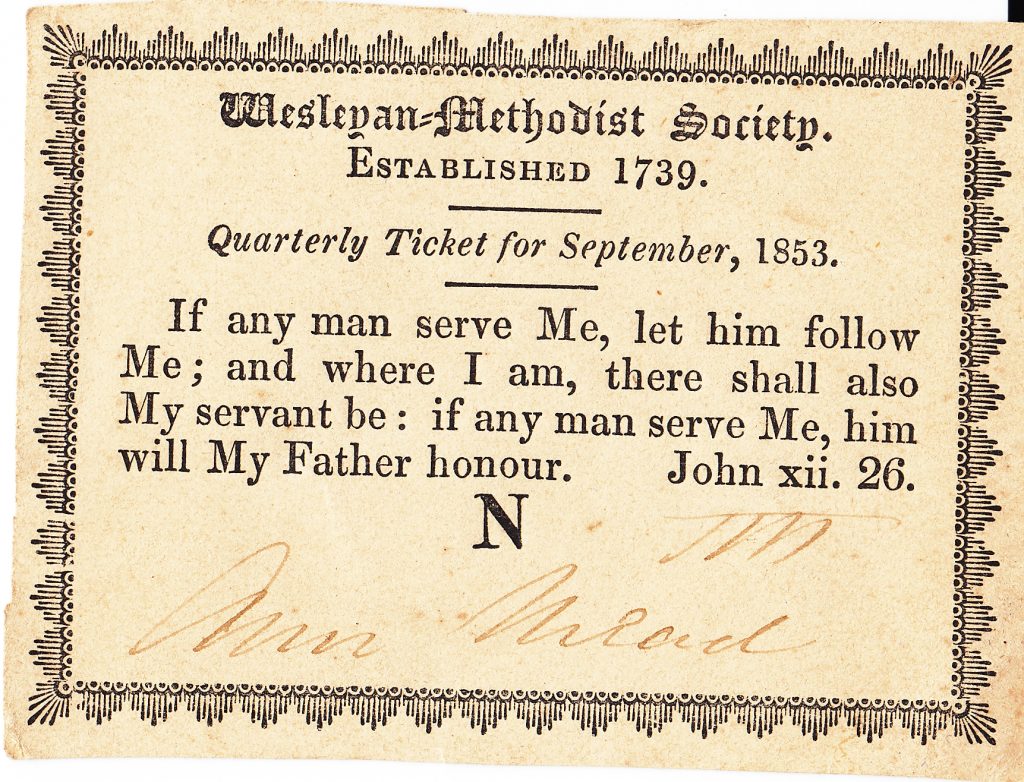 Wesleyan-Methodist Society.
Established 1739.
Quarterly Ticket for September, 1853.
If any man serve Me, let him follow
Me; and where I am, there shall also
My servant be: if any man serve Me, him
will My Father honour. John xii. 26.
N
Ann Mead